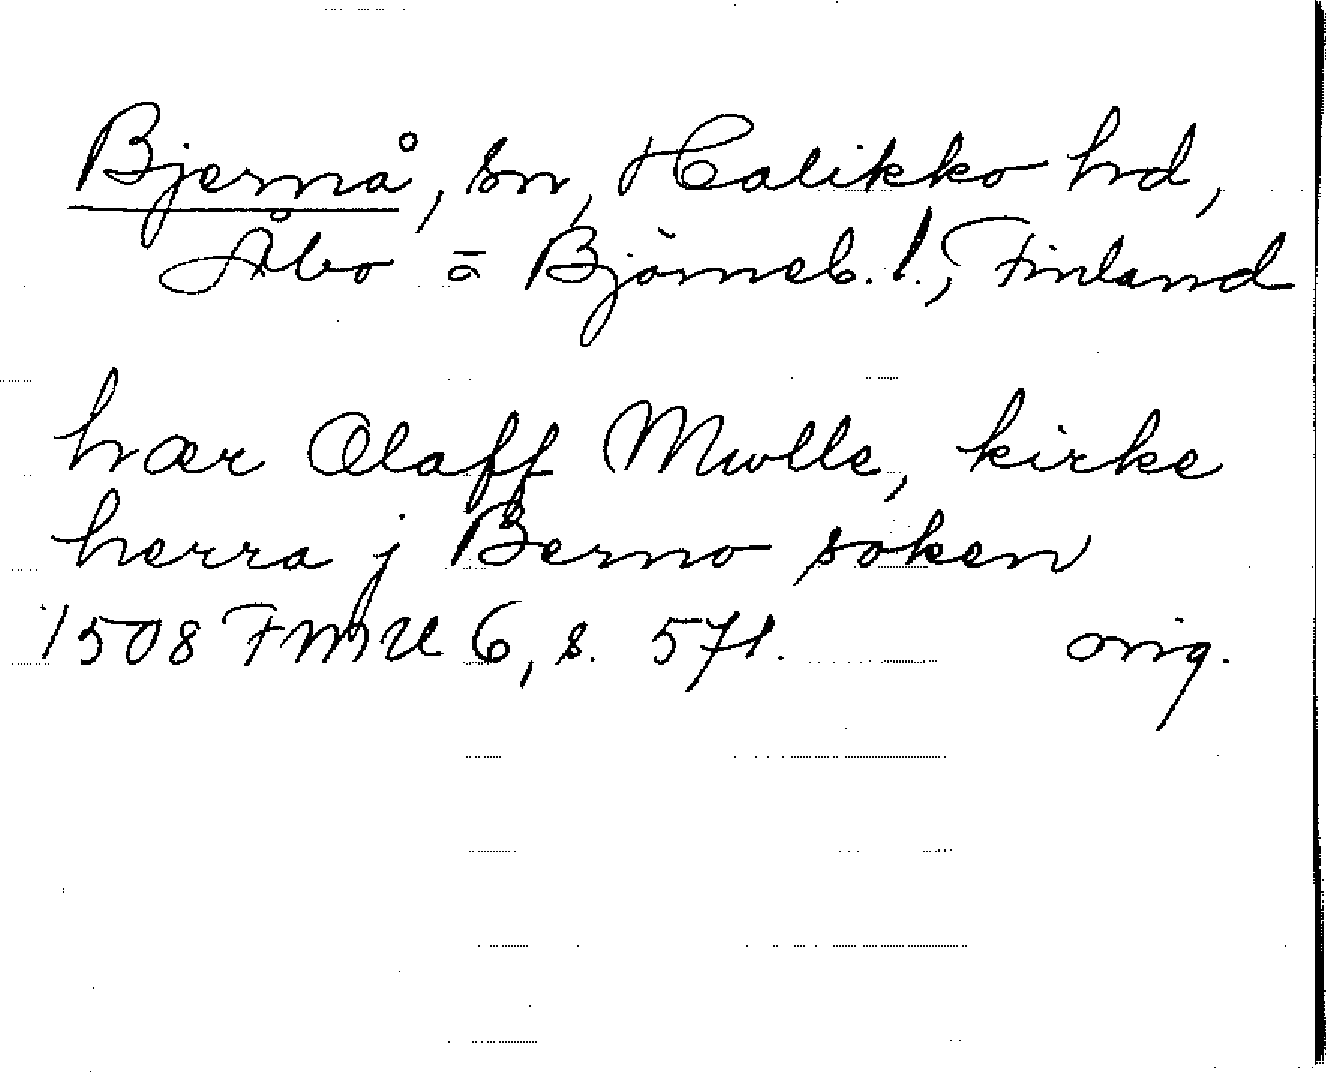 Bjernå, sn, Halikko hd,
Åbo = Björneb. l., Finland
hær Olaff Mwlle, kirke
herra j Berno soken
1508 FMU 6, s. 571. orig.